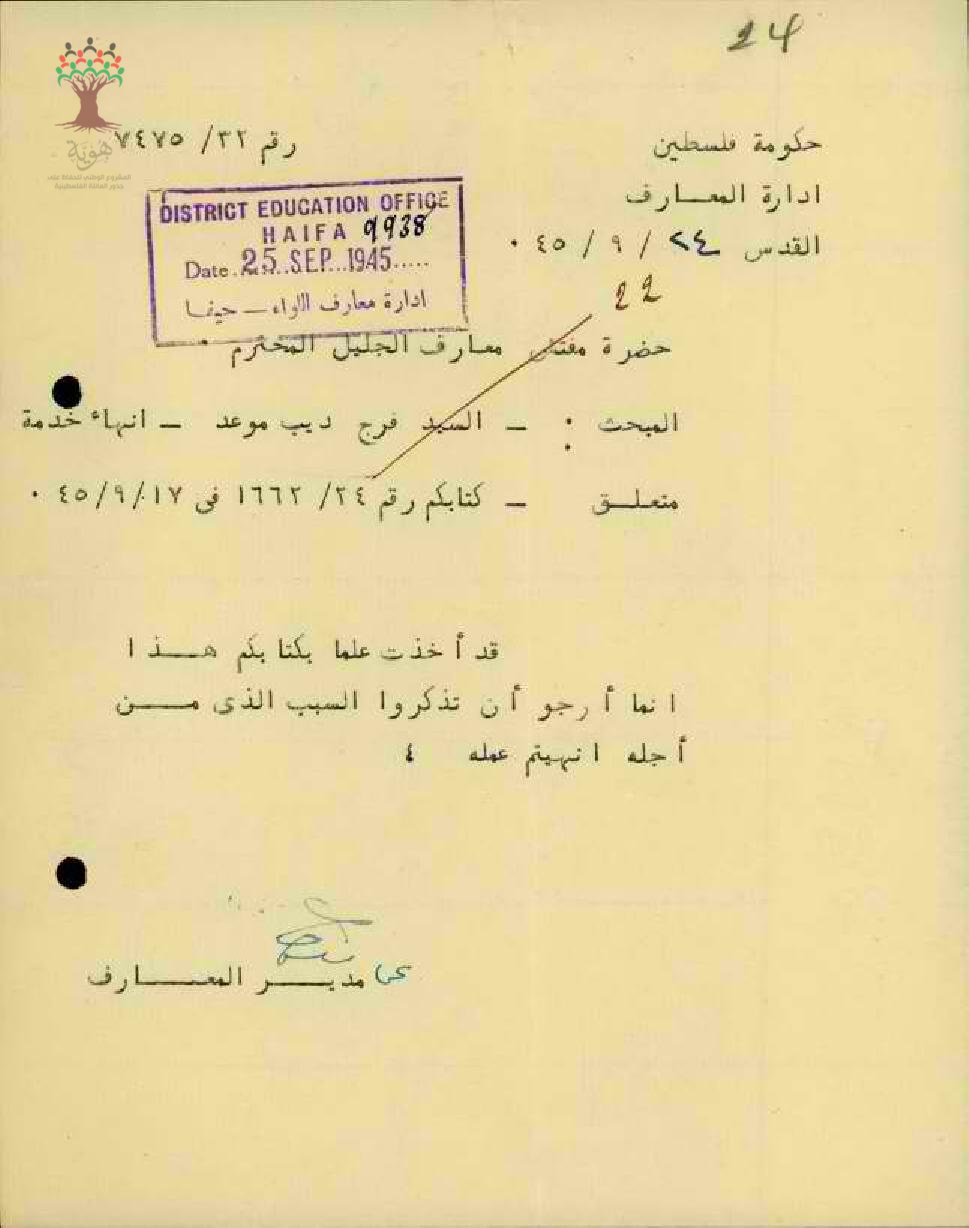 24
هوية
المشروع الوطني للحفاظ على
جذور العائلة الفلسطينية
رقم ٣٢/ ٧٤٧٥
حكومة فلسطين
ادارة المعــارف
القدس ٢٤ / ٩ / ٤٥ ٠
DISTRICT EDUCATION OFFICE
HAIFA 9938
Date 25 SEP 1945
ادارة معارف اللواء — حيفا
22
حضرة مفتش معارف الجليل المحترم ٠
المبحث : — السيد فرج ديب موعد — انهاء خدمة
متعلــق — كتابكم رقم ٢٤/ ١٦٦٢ فى ١٧/٩/٤٥ ٠
قد أخذت علما بكتابكم هــذا
انما أرجو أن تذكروا السبب الذى مــن
أجله انهيتم عمله ٤
مديــر المعــارف